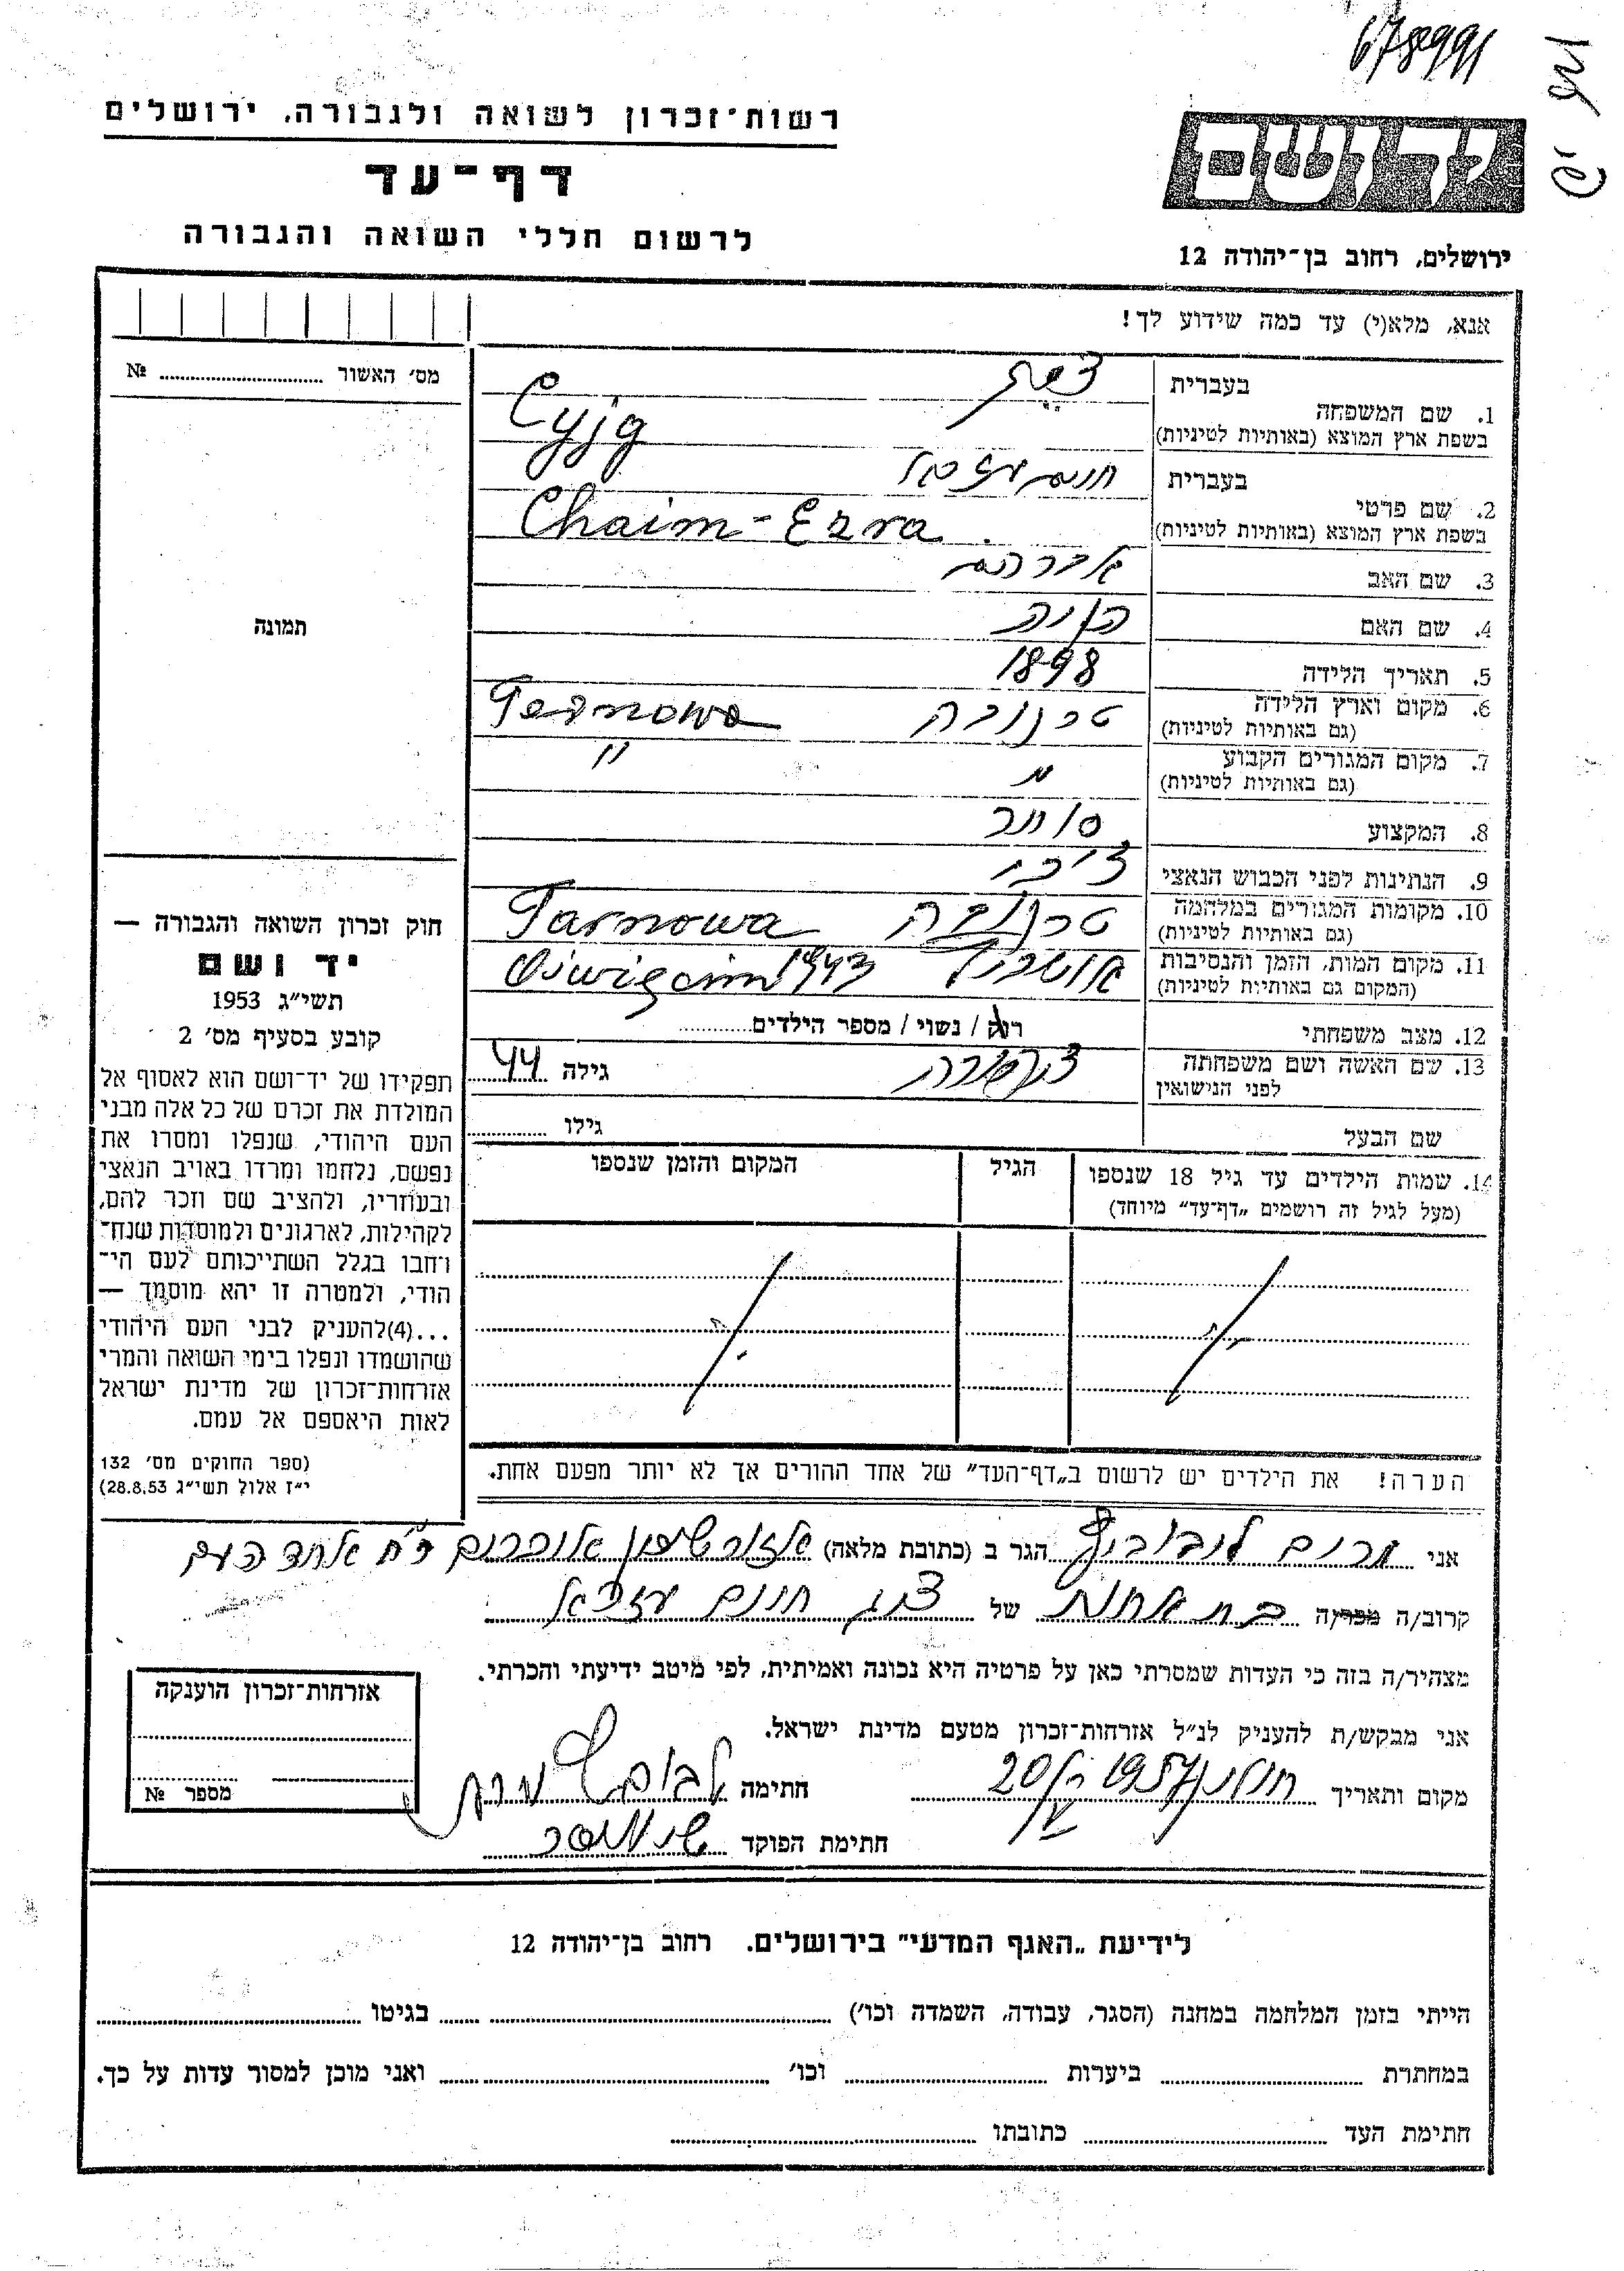 678991
רשות־זכרון לשואה ולגבורה, ירושלים
דף־עד
לרשום חללי השואה והגבורה
יד ושם
ירושלים, רחוב בן־יהודה 12
אנא, מלא(י) עד כמה שידוע לך!
מס׳ האשור № ..........
תמונה
1. שם המשפחה
בעברית
בשפת ארץ המוצא (באותיות לטיניות) Cyjg
2. שם פרטי
בעברית חיים עזריאל
בשפת ארץ המוצא (באותיות לטיניות) Chaim-Ezra
3. שם האב אברהם
4. שם האם
5. תאריך הלידה 1898
6. מקום וארץ הלידה טרנובה
(גם באותיות לטיניות)
7. מקום המגורים הקבוע " "
(גם באותיות לטיניות)
8. המקצוע סוחר
9. הנתינות לפני הכבוש הנאצי
10. מקומות המגורים במלחמה טרנובה Tarnowa
(גם באותיות לטיניות)
11. מקום המות, הזמן והנסיבות 1943
(המקום גם באותיות לטיניות)
12. מצב משפחתי רוק / נשוי / מספר הילדים..........
13. שם האשה ושם משפחתה גילה 44
לפני הנישואין
שם הבעל גילו ..........
14. שמות הילדים עד גיל 18 שנספו הגיל המקום והזמן שנספו
(מעל לגיל זה רושמים „דף־עד״ מיוחד)
הערה! את הילדים יש לרשום ב„דף־העד״ של אחד ההורים אך לא יותר מפעם אחת.
חוק זכרון השואה והגבורה —
יד ושם
תשי״ג 1953
קובע בסעיף מס׳ 2
תפקידו של יד־ושם הוא לאסוף אל
המולדת את זכרם של כל אלה מבני
העם היהודי, שנפלו ומסרו את
נפשם, נלחמו ומרדו באויב הנאצי
ובעוזריו, ולהציב שם וזכר להם,
לקהילות, לארגונים ולמוסדות שנח־
רבו בגלל השתייכותם לעם הי־
הודי, ולמטרה זו יהא מוסמך —
...(4)להעניק לבני העם היהודי
שהושמדו ונפלו בימי השואה והמרי
אזרחות־זכרון של מדינת ישראל
לאות היאספם אל עמם.
(ספר החוקים מס׳ 132
י״ז אלול תשי״ג 28.8.53)
אני מרים ליבוביץ הגר ב (כתובת מלאה)
קרוב/ה מכר/ה בת אחות של ציג חיים עזריאל
מצהיר/ה בזה כי העדות שמסרתי כאן על פרטיה היא נכונה ואמיתית, לפי מיטב ידיעתי והכרתי.
אני מבקש/ת להעניק לנ״ל אזרחות־זכרון מטעם מדינת ישראל.
מקום ותאריך חולון 1957 חתימה
חתימת הפוקד
אזרחות־זכרון הוענקה
מספר №
לידיעת „האגף המדעי״ בירושלים. רחוב בן־יהודה 12
הייתי בזמן המלחמה במחנה (הסגר, עבודה, השמדה וכו׳) .......... בגיטו ..........
במחתרת .......... ביערות .......... וכו׳ .......... ואני מוכן למסור עדות על כך.
חתימת העד .......... כתובתו ..........